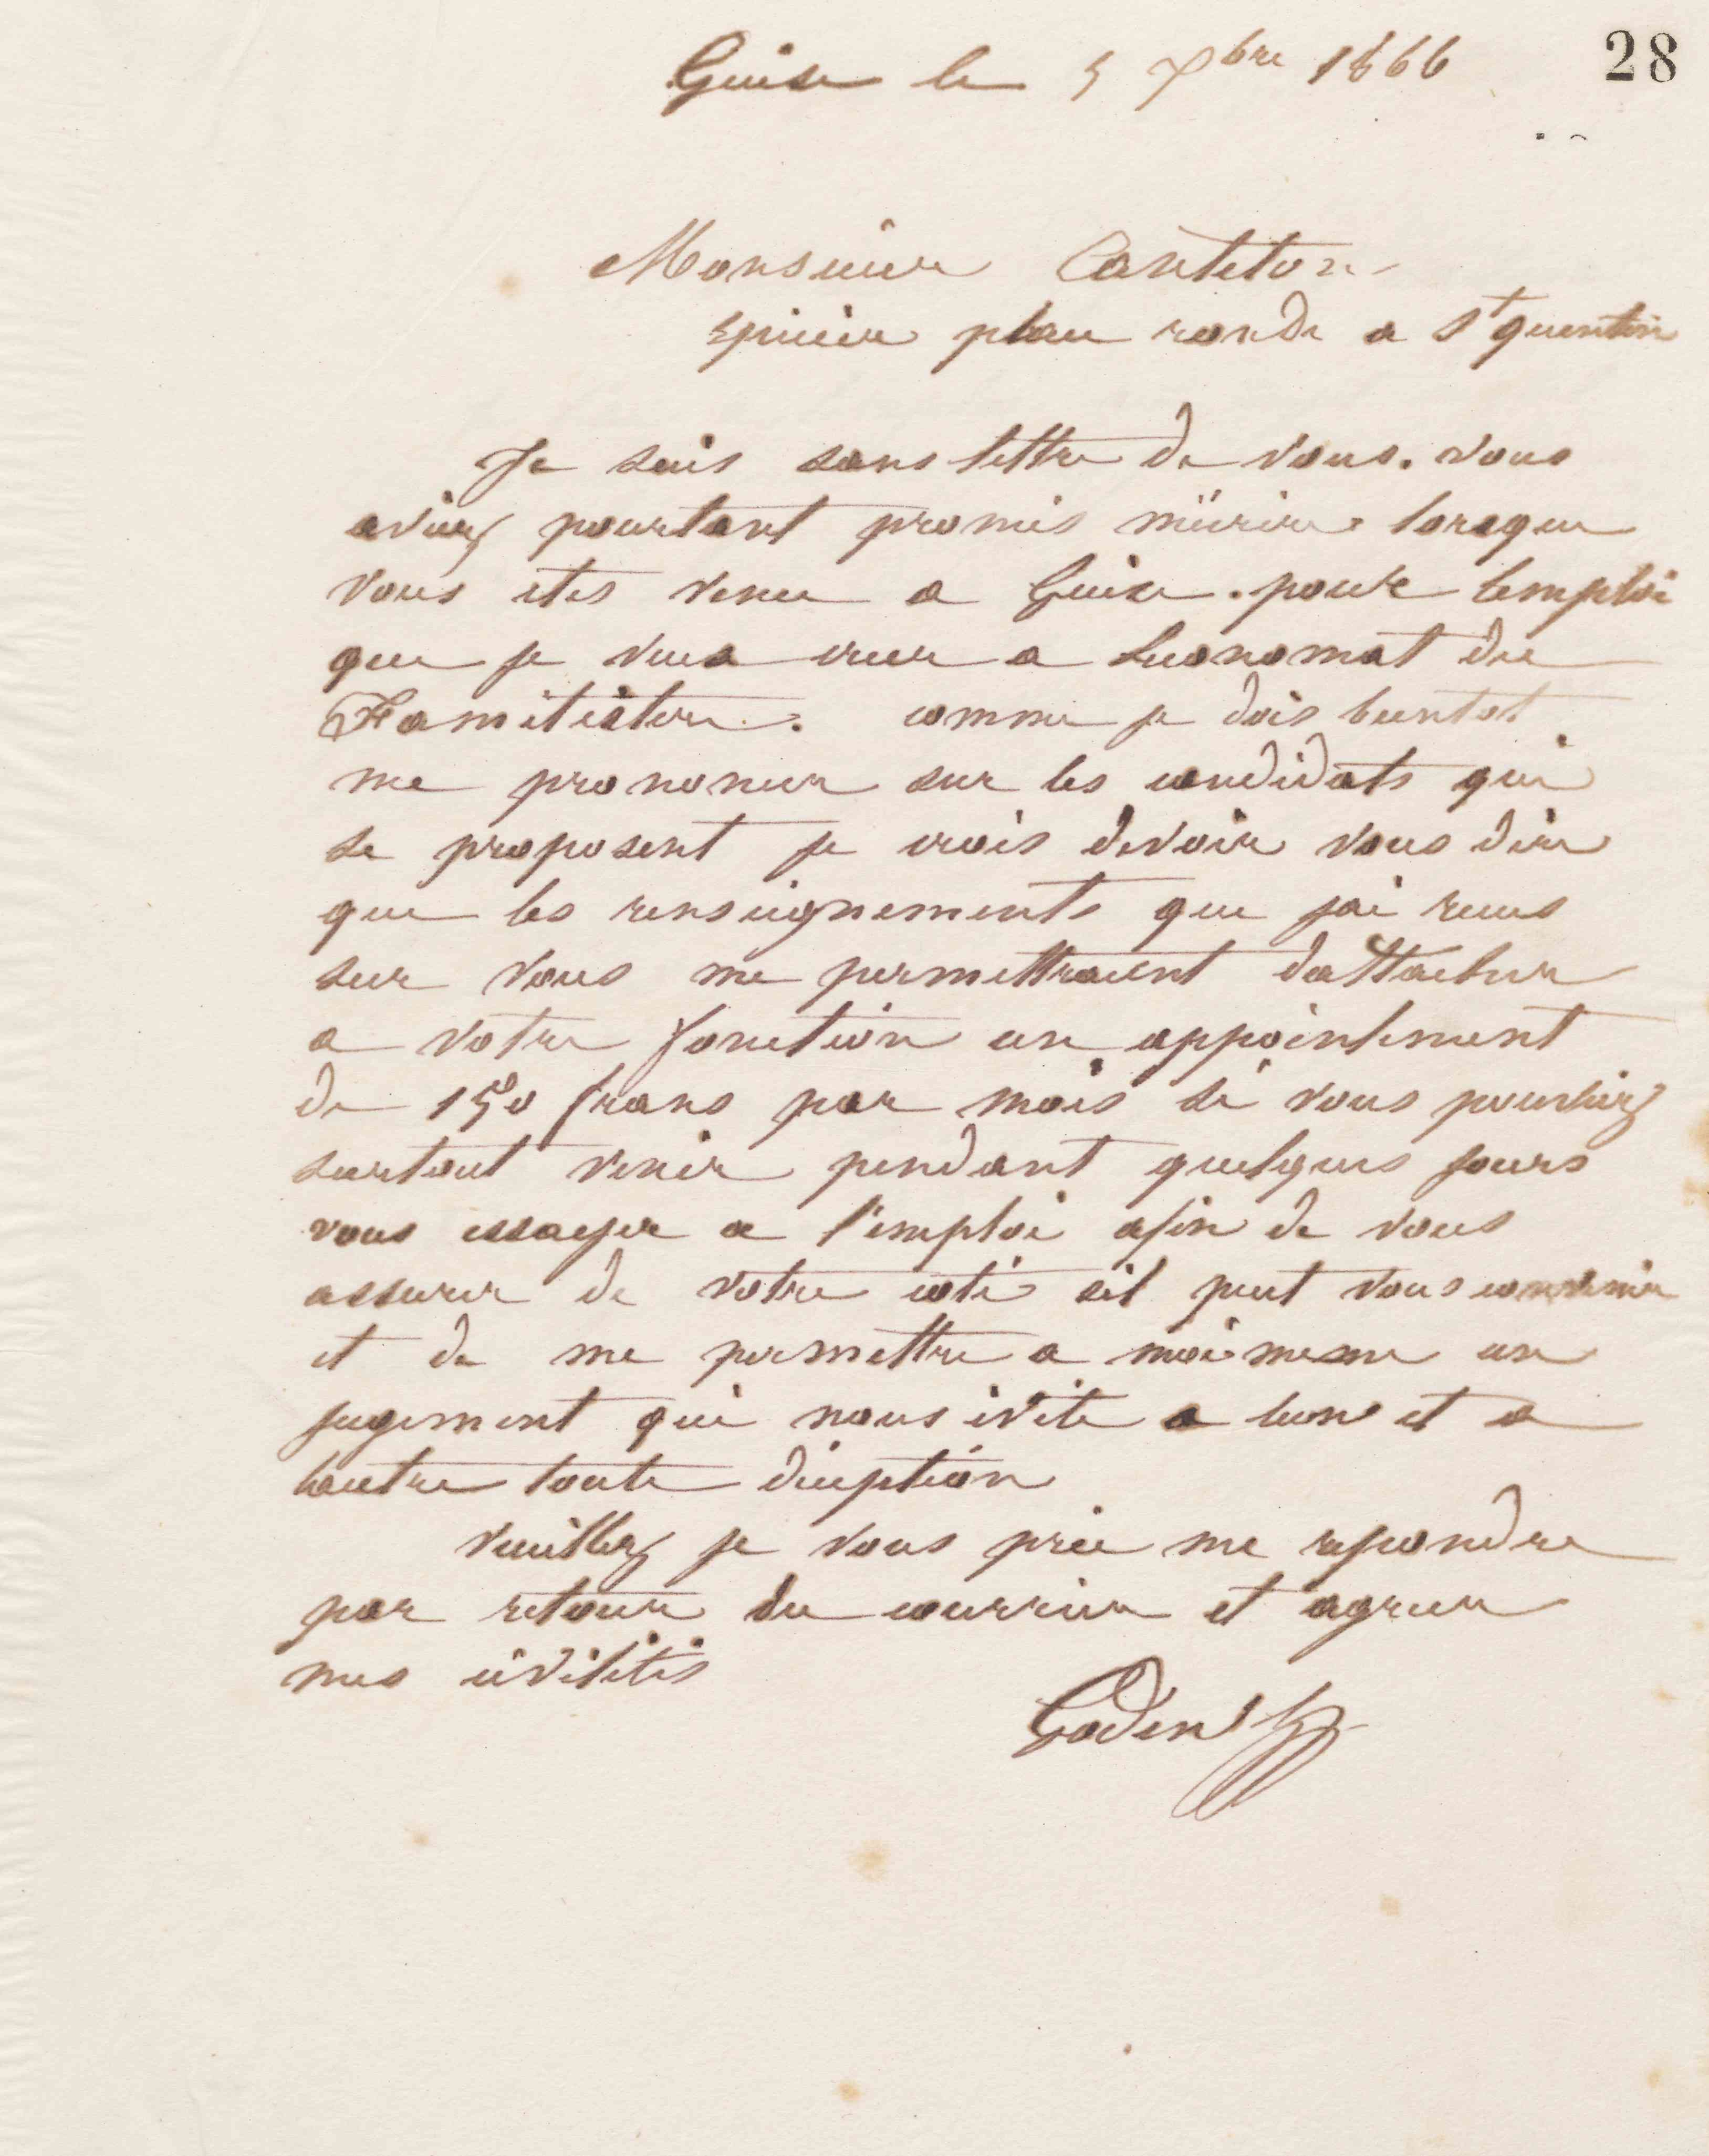 28
Guise le 5 7bre 1866
Monsieur Canteton
epicier place ronde a St quentin
Je suis sans lettre de vous. vous
aviez pourtant promis mécrire lorsque
vous etes venu a Guise. pour lemploi
que je veux creer a leconomat du
Familistère. comme je dois bientot
me prononcer sur les candidats qui
se proposent je crois devoir vous dire
que les renseignements que jai recus
sur vous me permettraient dattacher
a votre fonction un appointement
de 150 francs par mois si vous pourriez
surtout venir pendant quelques jours
vous essayer a l'emploi afin de vous
assurer de votre coté sil peut vous convenir
et de me permettre a moi meme un
jugement qui nous évite a lun et a
lautre toute déception
Veuillez je vous prie me repondre
par retour du courrier et agreer
mes civilités
Godin